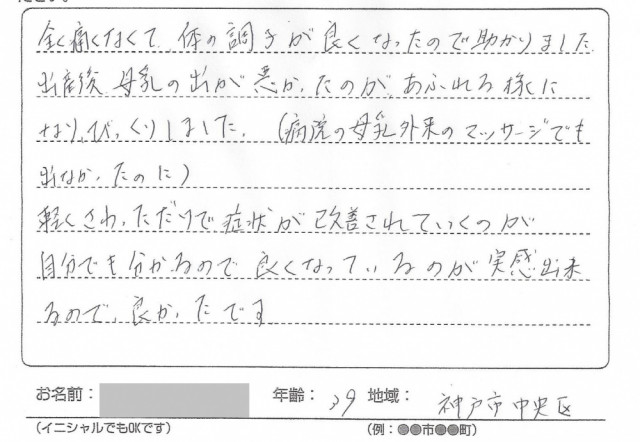 全く痛くなくて、体の調子が良くなったので助かりました
出産後 母乳の出が悪かったのが、あふれる様に
なり、びっくりしました。(病院の母乳外来のマッサージでも
出なかったのに)
軽くさわっただけで症状が改善されていくのが
自分でも分かるので 良くなっているのが実感出来
るので、良かったです
お名前: 年齢: 29 地域: 神戸市中央区
(イニシャルでもOKです) (例:●●市●●町)